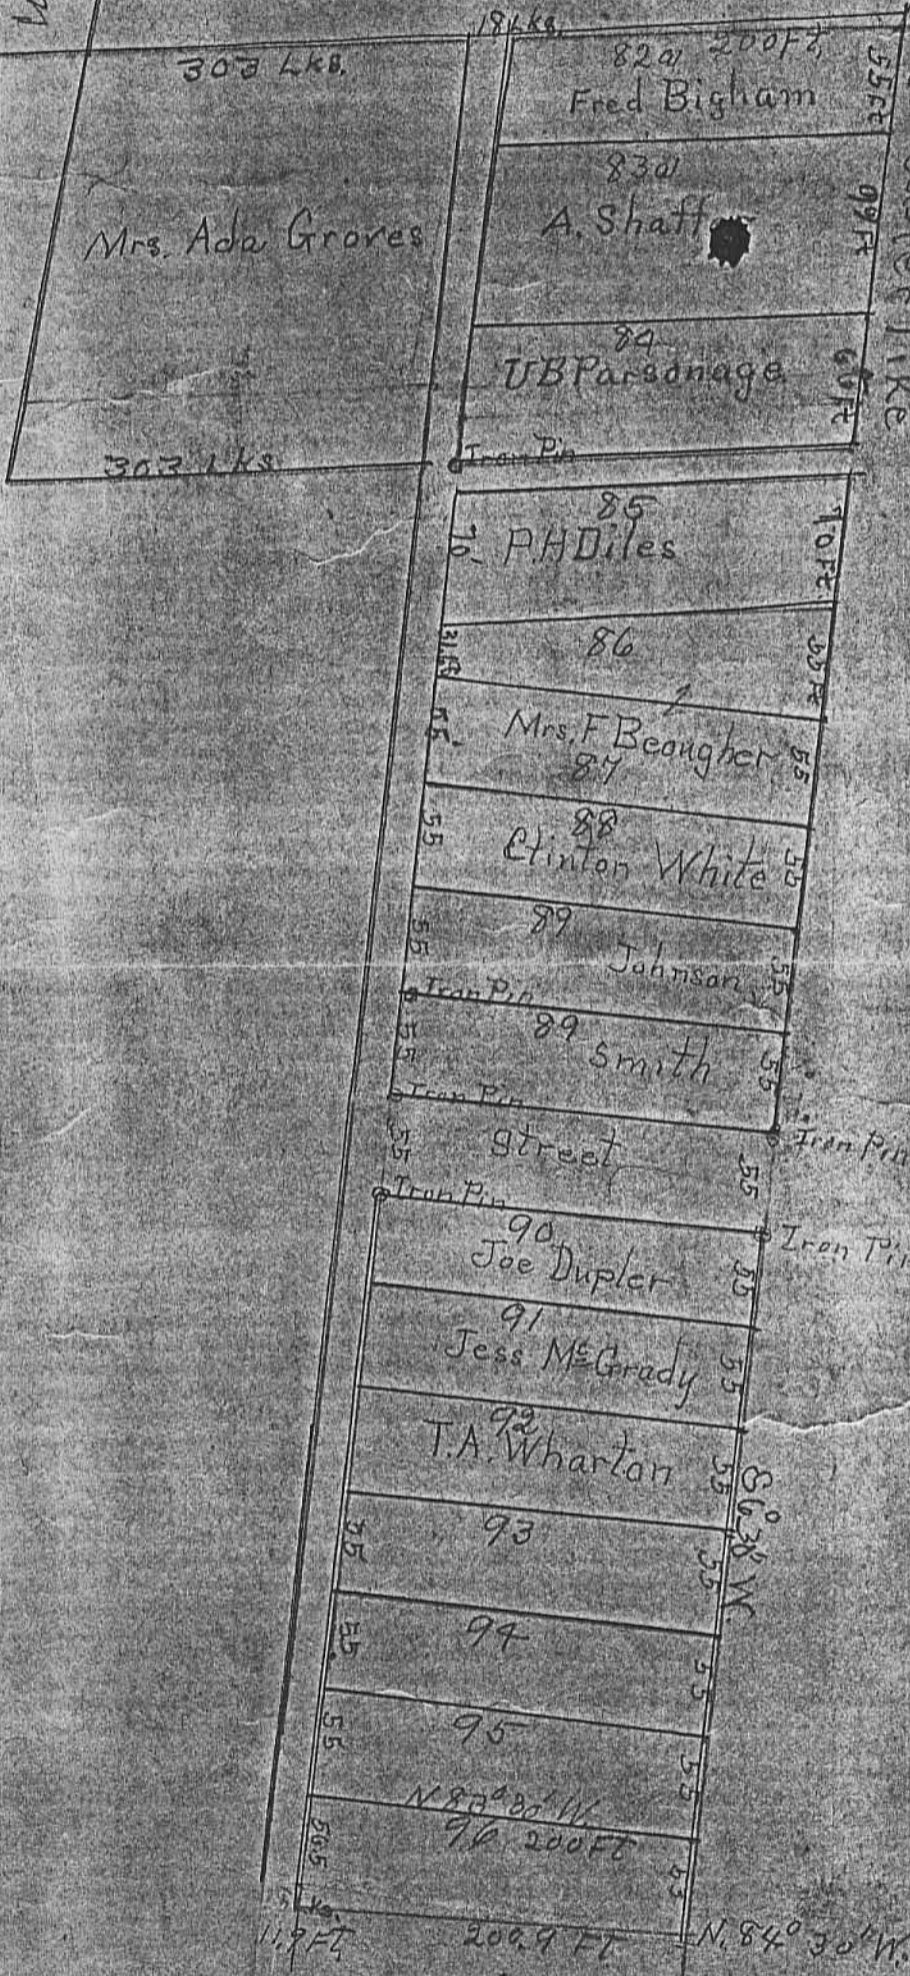 18 Lks.
303 Lks.
82a 200 Ft.
55 Ft
Fred Bigham
83a
A. Shaff
99 Ft
Mrs. Ada Groves
84
UB Parsonage
66 Ft
Pike
303 Lks.
Iron Pin
85
70 P.H Diles 70 Ft
86
Mrs. F Beougher
55 55
87
88
55 Clinton White 55
89
55 Johnson 55
Iron Pin
89
55 Smith 55
Iron Pin
Iron Pin
55 Street 55
Iron Pin
Iron Pin
90
Joe Dupler 55
91
Jess McGrady 55
92
T.A. Wharton 55
S 6° 30' W.
93
55
94
55 55
95
55 55
N 83° 30' W.
96 200 FT
56.5 53
Lks.
11.9 FT. 200.9 FT N. 84° 30' W.